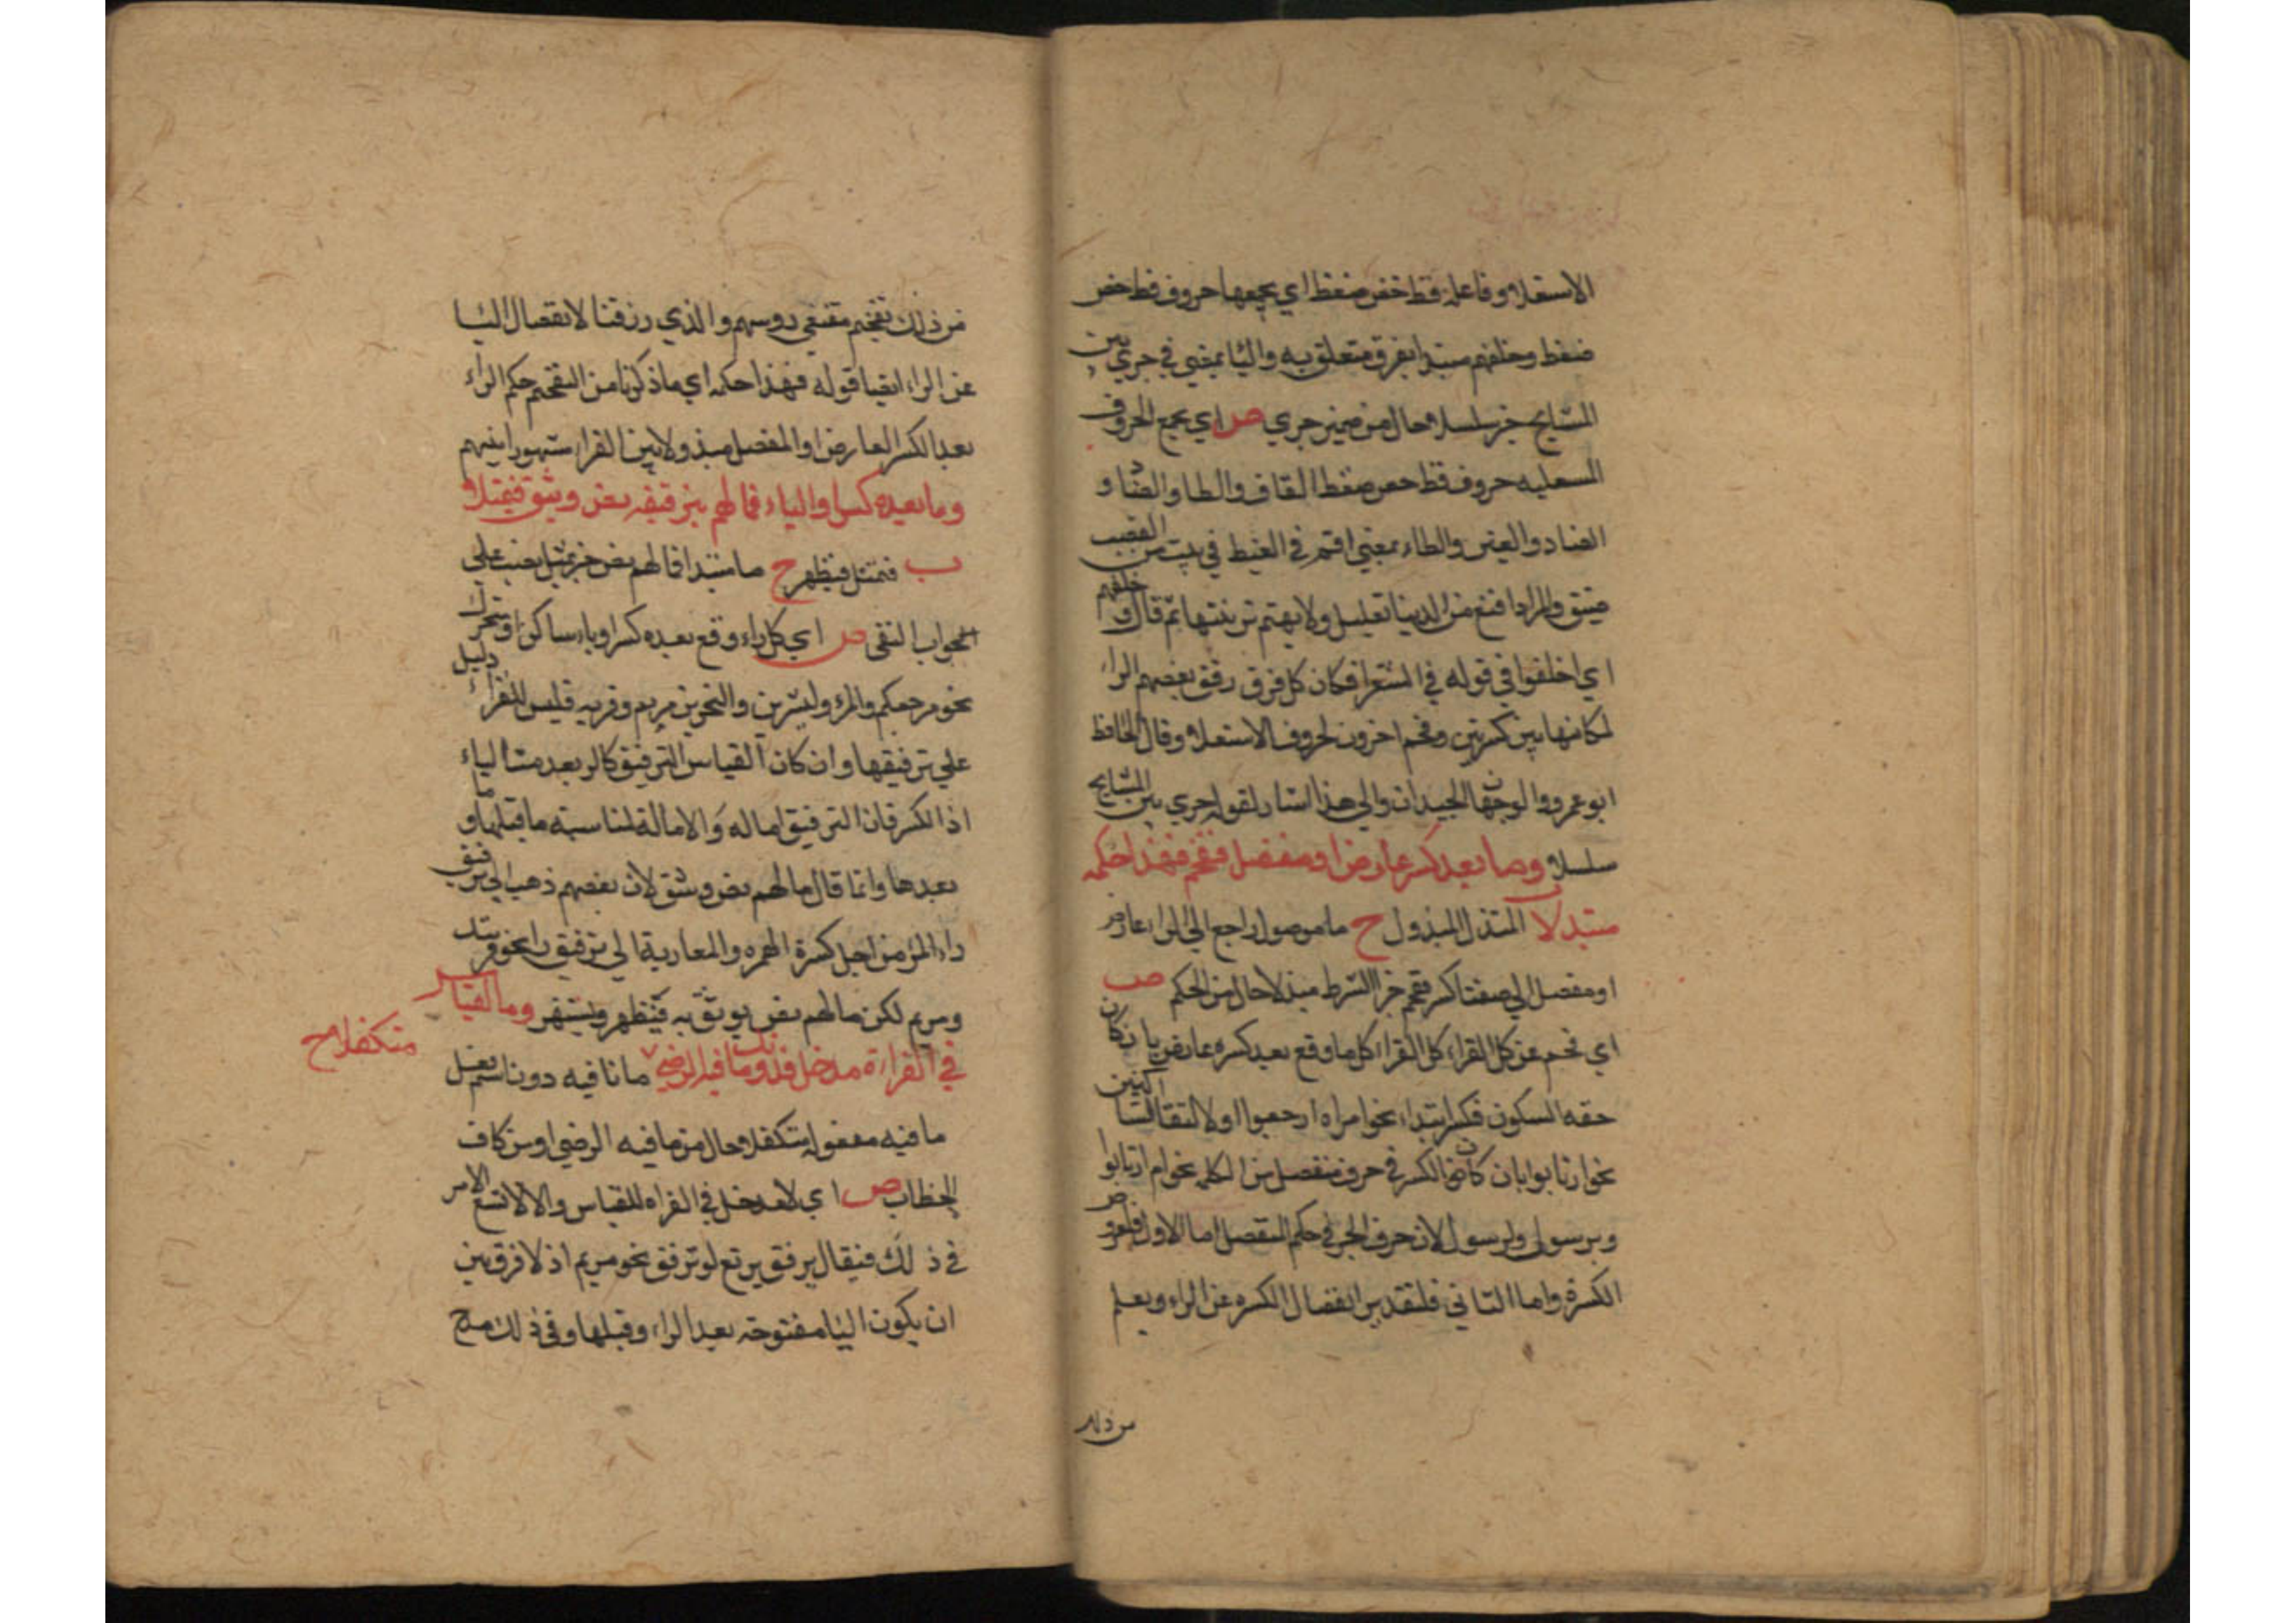 الاستعلاء وفاعله قظ خص ضغط اي يجمعها حروف قظ خص
ضغط وخلفهم مبتدا بفرق متعلق به واليا بمعني في جري بين
المشايخ خبر سلسلا حال من ضمير جري ص اي يجمع الحروف
المستعليه حروف قظ خص ضغط القاف والظا والخا و
الضاد والغين والطاء بمعني اقم في الغيظ في بيت من القصب
ضيق والمراد اقنع من الدنيا بقليل ولا تهتم بزينتها ثم قال وخلفهم
اي اختلفوا في قوله في الشعرا فكان كل فرق رقق بعضهم الرا
لمكانها بين كسرتين وفخم اخرون لحروف الاستعلاء وقال الحافظ
ابو عمرو والوجهان الجيدان والي هذا اشار بقوله جري بين المشايخ
سلسلا وما بعد كسر عارض او مفصل ففخم فهذا حكمه
متبذلا ب المتبذل المبذول ح ما موصول راجع الي الرا عارض
او مفصل الي صفتا كسر ففخم جزا الشرط متبذلا حال من الحكم ص
اي فخم عن كل القراء كل القراء كل ما وقع بعد كسره عارض بان كان
حقه السكون فكسر ابتداء نحو امراه ارجعوا او لالتقا الساكنين
نحو ارتابوا بان كان الكسر في حرف منفصل من الكلمه نحو ام ارتابوا
وبرسول ولرسول لان حرف الجر في حكم المنفصل اما الاول فلعروض
الكسرة واما الثاني فلتقدير انفصال الكسره عن الراء ويعلم
من ذلك
من ذلك تفخيم مقنعي روسهم والذي رزقنا لانفصال اليا
عن الراء ايضا قوله فهذا حكمه اي ماذكرنا من التفخيم حكم الراء
بعد الكسر العارض او المفصل مبذولا بين القراء مشهورا بينهم
وما بعده كسر او الياء فمالهم بترقيقه نص وثيق فيمثلا
ب فيمثل فيظهر ح ما مبتدا فمالهم نص خبر يمثل نصب علي
الجواب النفي ص اي كل راء وقع بعده كسر او ياء ساكن او متحرك
نحو مرجعكم والمرء ولبشرين والبحرين مريم وقريه فليس للقراء دليل
علي ترقيقها وان كان القياس الترقيق كالر بعد من الياء
اذ الكسر فان الترقيق اماله والامالة لمناسبة ما قبلها وما
بعدها وانما قال مالهم نص وثيق لان بعضهم ذهب الي ترقيق
راء المرء من اجل كسرة الهمزه والمغاربة الي ترقيق را نحو قريه
ومريم لكن مالهم نص يوثق به فيظهر ويشتهر وما القياس
في القراءة مدخل فدونك ما فيه الرضي ما نافيه دون اسم فعل
متكفلا ح
ما فيه مفعوله متكفلا حال من ما فيه الرضي او من كاف
الخطاب ص اي لا مدخل في القراه للقياس والا لاتسع الامر
في ذلك فيقال يرفق يرتع لو ترقق نحو مريم اذ لا فرق بين
ان يكون اليا مفتوحة بعد الراء وقبلها وفي ذلك مدح